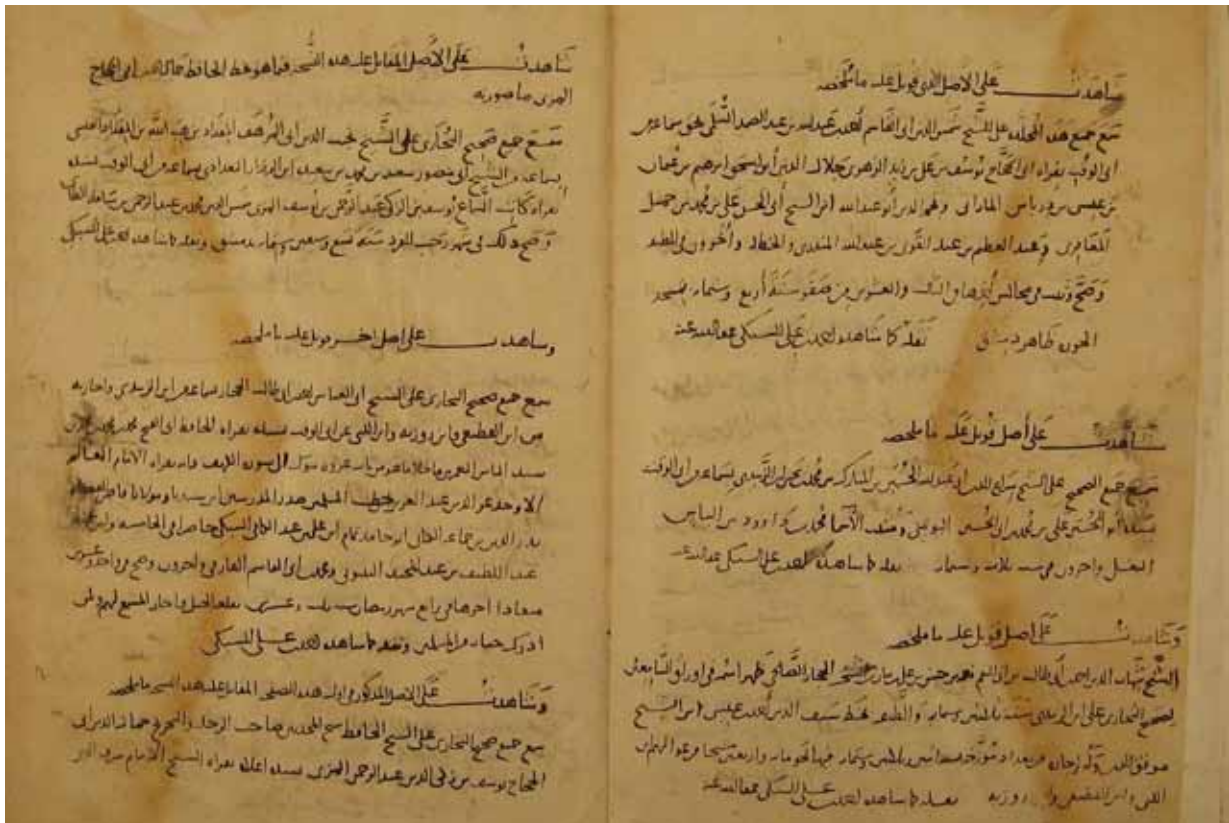 شاهدت على الاصل الذي قوبل عليه ما ملخصه
سمع جميع هذه المجلدة على الشيخ شمس الدين ابي القاسم احمد بن عبد الله بن عبد الصمد السلمي بحق سماعه من
ابي الوقت بقراءة ابي الحجاج يوسف بن علي بن زيد الزهري جلال الدين ابو اسحق ابرهيم بن عثمان
بن عيسى بن درباس الماراني وفخر الدين ابو عبد الله ابن الشيخ ابي الحسن علي بن محمد بن جميل
المعافري وعبد العظيم بن عبد القوي بن عبد الله المنذري والخط له واخرون في الطبقة
وصح وثبت في مجالس اخرها في الثالث والعشرين من صفر سنة اربع وستمائة بمسجد
الحوزة ظاهر دمشق نقله كما شاهده احمد بن علي السبكي عفا الله عنه
شاهدت على اصل قوبل عليه ما ملخصه
سمع جميع الصحيح على الشيخ سراج الدين ابي عبد الله الحسين بن المبارك بن محمد بن يحيى ابن الزبيدي بسماعه من ابي الوقت
بسنده ابو الحسين علي بن محمد بن ابي الحسين اليونيني ومثبت الاسماء محمد بن داوود بن الياس
البعلي واخرون في سنة ثلاثين وستمائة نقله كما شاهده احمد بن علي السبكي عفا الله عنه
وشاهدت على اصل قوبل عليه ما ملخصه
الشيخ شهاب الدين احمد بن ابي طالب بن ابي النعم نعمة بن حسن بن علي بن بيان الشحنة الحجار الصالحي ظهر اسمه في اوراق السامعين
لصحيح البخاري على ابن الزبيدي سنة ثلاثين وستمائة والطبقة بخط سيف الدين احمد بن عيسى ابن الشيخ
موفق الدين وله اجازة من بغداد مؤرخة سنة ثلاثين وستمائة فيها نحو مائة واربعين شيخا
اللتي وابن القطيعي وابن روزبه نقله كما شاهده احمد بن علي السبكي عفا الله عنه
شاهدت على الاصل المقابل عليه هذه النسخة فيما هو بخط الحافظ جمال الدين ابي الحجاج
المزي ما صورته
سمع جميع صحيح البخاري على الشيخ نجيب الدين ابي المرهف المقداد بن هبة الله بن المقداد القيسي
بسماعه من الشيخ ابي منصور سعيد بن محمد بن سعيد ابن الرزاز البغدادي بسماعه من ابي الوقت بسنده
بقراءة كاتب السماع يوسف بن الزكي عبد الرحمن بن يوسف المزي شمس الدين محمد بن عبد الرحمن بن سامة الطائي
وصح ذلك في شهر رجب الفرد سنة تسع وسبعين وستمائة بدمشق ونقله كما شاهده احمد بن علي السبكي
وشاهدت على اصل اخر قوبل عليه ما ملخصه
سمع جميع صحيح البخاري على الشيخ ابي العباس احمد بن ابي طالب الحجار بسماعه من ابن الزبيدي واجازته
من ابن القطيعي وابن روزبه وابن اللتي عن ابي الوقت بسنده بقراءة الحافظ ابي الفتح محمد بن محمد
الاوحد عز الدين عبد العزيز صدر المدرسين
بدر الدين بن جماعة ابو حامد تمام ابن علي بن عبد الكافي السبكي حاضرا في الخامسة
عبد اللطيف بن عبد المجيد واخرون وصح في احد وعشرين
ميعادا اخرها في رابع شهر رمضان سنة واجاز المسمع لهم ولمن
ادرك حياته من المسلمين ونقله كما شاهده احمد بن علي السبكي
وشاهدت على الاصل المذكور في اول هذه الصفحة المقابل عليه هذه النسخة ما ملخصه
سمع جميع صحيح البخاري على الشيخ الحافظ شيخ المحدثين صاحب الرحلة جمال الدين ابي
الحجاج يوسف بن زكي الدين عبد الرحمن المزي بسنده اعلاه بقراءة الشيخ الامام شرف الدين